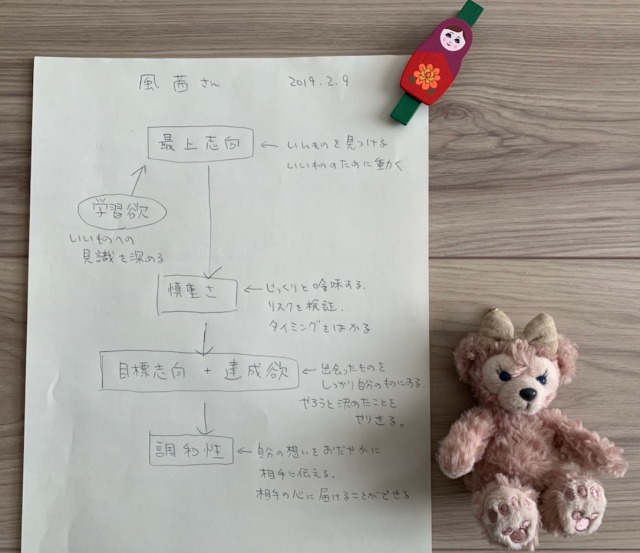 風茜さん 2019.2.9
最上志向 ← いいものを見つける
いいもののために動く
学習欲
いいものへの
見識を深める
慎重さ ← じっくりと吟味する。
リスクを検証。
タイミングをはかる
目標志向 + 達成欲 ← 出会ったものを
しっかり自分のものにする。
やろうと決めたことを
やりきる。
調和性 ← 自分の想いをおだやかに
相手に伝える。
相手の心に届けることができる